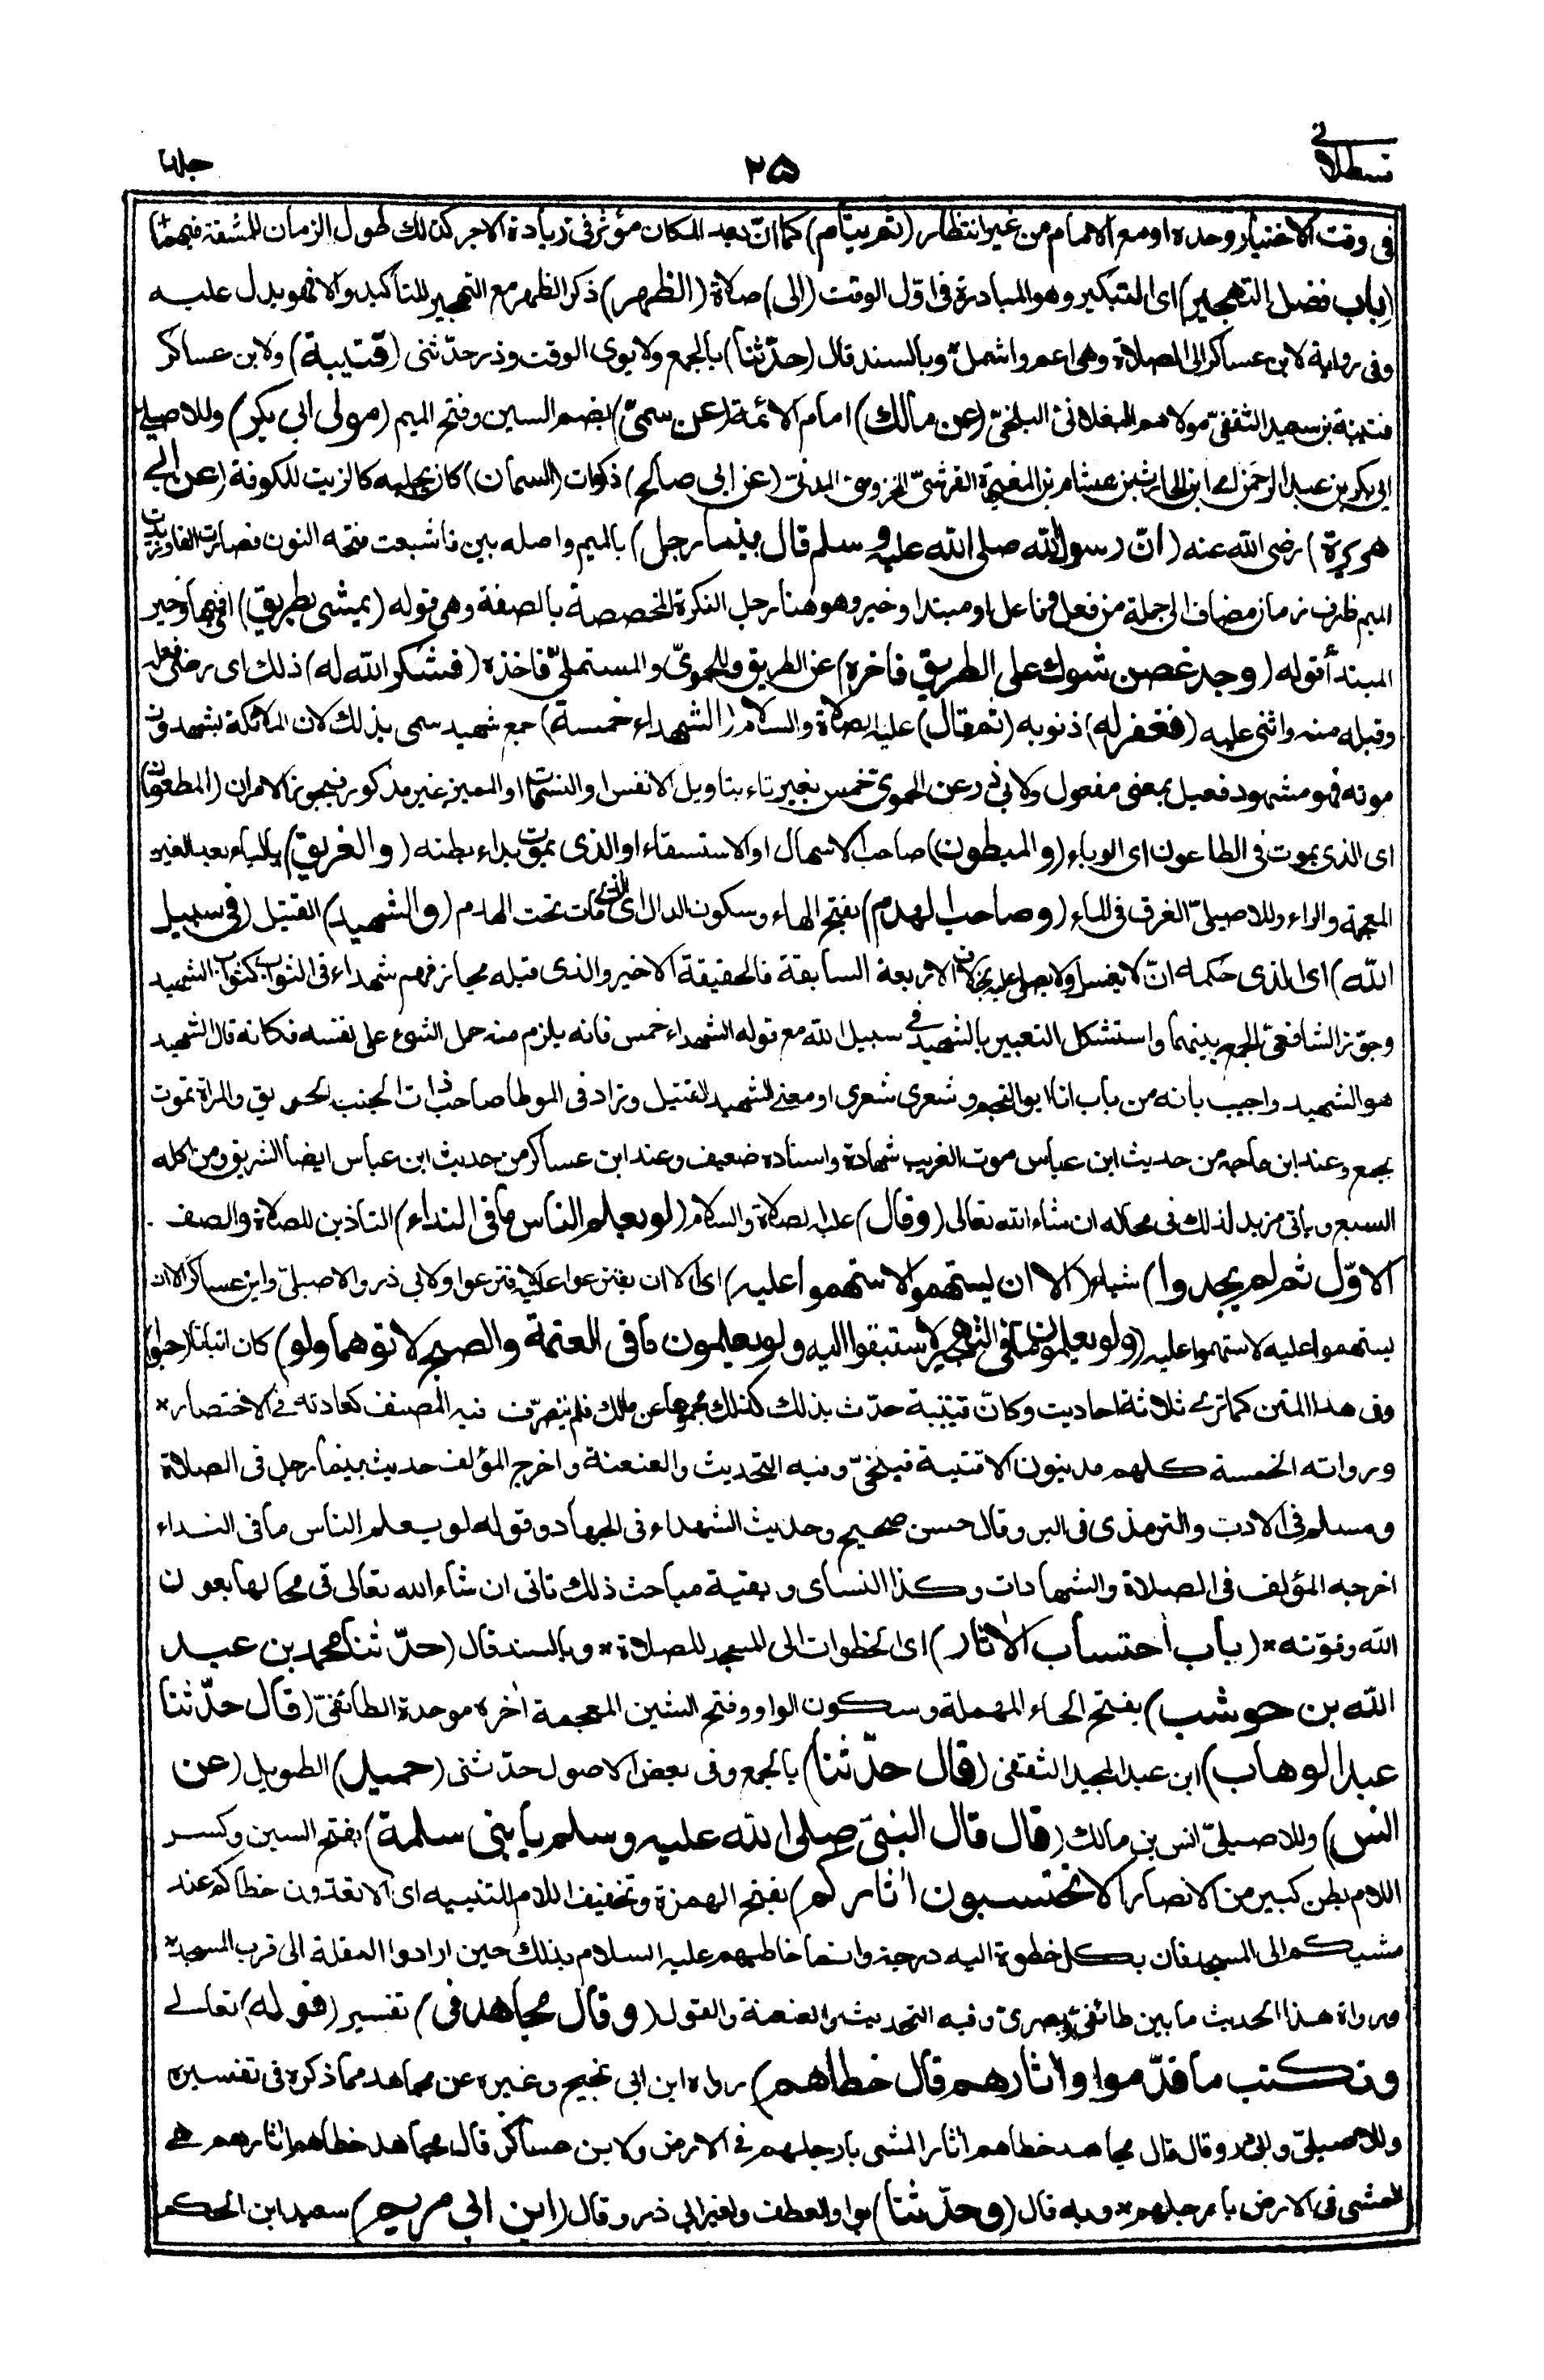 قسطلانی
٢٥
جلد٢
فى وقت الاختيار وحده او مع الامام من غير انتظار (ثم ينام) كما انّ بعد المكان مؤثر فى زيادة الاجر كذلك طول الزمان للمشقة فيهما
(باب فضل التهجير) اى التبكير وهو المبادرة فى اوّل الوقت (الى) صلاة (الظهر) ذكر الظهر مع التهجير للتأكيد والا فهو يدل عليه
وفى رواية لابن عساكر الى الصلاة وهى اعم واشمل * وبالسند قال (حدّثنا) بالجمع ولابوى الوقت وذر حدّثنى (قتيبة) ولابن عساكر
قتيبة بن سعيد الثقفىّ مولاهم البغلانىّ البلخىّ (عن مالك) امام الائمة (عن سمىّ) بضم السين وفتح الميم (مولى ابى بكر) وللاصيلى
ابى بكر بن عبد الرحمن اى ابن الحارث بن هشام بن المغيرة القرشىّ المخزومىّ المدنىّ (عن ابى صالح) ذكوان (السمان) كان يجلبه كالزيت للكوفة (عن ابى
هريرة) رضى الله عنه (انّ رسول الله صلى الله عليه وسلم قال بينما رجل) بالميم واصله بين فاشبعت فتحة النون فصارت الفا وزيدت
الميم ظرف زمان مضاف الى جملة من فعل وفاعل او مبتدا وخبر وهو هنا رجل النكرة المخصصة بالصفة وهى قوله (يمشى بطريق) اى فيها وخبر
المبتدأ قوله (وجد غصن شوك على الطريق فاخره) عن الطريق وللحموىّ والمستملىّ فاخذه (فشكر الله له) ذلك اى رضى فعله
وقبله منه واثنى عليه (فغفر له) ذنوبه (ثم قال) عليه الصلاة والسلام (الشهداء خمسة) جمع شهيد سمى بذلك لان الملائكة يشهدون
موته فهو مشهود فعيل بمعنى مفعول ولابى ذر عن الحموى خمس بغير تاء بتاويل الانفس او النسمات او المميز غير مذكور فيجوز الامران (المطعون)
اى الذى يموت فى الطاعون اى الوباء (والمبطون) صاحب الاسهال او الاستسقاء او الذى يموت بداء بطنه (والغريق) بالياء بعد الغين
المعجمة والراء وللاصيلىّ الغرق فى الماء (وصاحب الهدم) بفتح الهاء وسكون الدال اى الذى مات تحت الهدم (والشهيد) القتيل (فى سبيل
الله) اى الذى حكمه انّ لا يغسل ولا يصلى عليه بخلاف الاربعة السابقة فالحقيقة الاخير والذى قبله مجاز فهم شهداء فى الثواب كثواب الشهيد
وجوّز الشافعىّ الجمع بينهما واستشكل التعبير بالشهيد فى سبيل الله مع قوله الشهداء خمس فانه يلزم منه حمل الشئ على نفسه فكانه قال الشهيد
هو الشهيد واجيب بانه من باب انا ابو النجم وشعرى شعرى او معنى الشهيد القتيل وزاد فى الموطا صاحب ذات الجنب الحريق والمراة تموت
بجمع وعند ابن ماجه من حديث ابن عباس موت الغريب شهادة واسناده ضعيف وعند ابن عساكر من حديث ابن عباس ايضا الشريق ومن اكله
السبع وياتى مزيد لذلك فى محاله ان شاء الله تعالى (وقال) عليه الصلاة والسلام (لو يعلم الناس ما فى النداء) التاذين للصلاة والصف
الاوّل ثم لم يجدوا) شيا (الا ان يستهموا لاستهموا عليه) اى الا ان يقترعوا عليه لاقترعوا ولابى ذر والاصيلىّ وابن عساكر الا ان
يستهموا عليه لاستهموا عليه (ولو يعلمون ما فى التهجير لاستبقوا اليه ولو يعلمون ما فى العتمة والصبح لاتوهما ولو) كان اتيانا (حبوا)
وفى هذا المتن كما ترى ثلاثة احاديث وكانّ قتيبة حدّث بذلك كذلك مجموعا عن مالك فلم يتصرّف فيه المصنف كعادته فى الاختصار *
ورواته الخمسة كلهم مدنيون الا قتيبة فبلخىّ وفيه التحديث والعنعنة واخرج المؤلف حديث بينما رجل فى الصلاة
ومسلم فى الادب والترمذى فى البر وقال حسن صحيح وحديث الشهداء فى الجهاد وقوله لو يعلم الناس ما فى النداء
اخرجه المؤلف فى الصلاة والشهادات وكذا النساى وبقية مباحث ذلك تاتى ان شاء الله تعالى فى محالها بعون
الله وقوّته * (باب احتساب الاثار) اى الخطوات الى المسجد للصلاة * وبالسند قال (حدّثنا محمد بن عبد
الله بن حوشب) بفتح الحاء المهملة وسكون الواو وفتح الشين المعجمة اخره موحدة الطائفىّ (قال حدّثنا
عبد الوهاب) ابن عبد المجيد الثقفى (قال حدّثنا) بالجمع وفى بعض الاصول حدّثنى (حميل) الطويل (عن
انس) وللاصيلىّ انس بن مالك (قال قال النبىّ صلى الله عليه وسلم يا بنى سلمة) بفتح السين وكسر
اللام بطن كبير من الانصار (الا تحتسبون اثاركم) بفتح الهمزة وتخفيف اللام للتنبيه اى الا تعدّون خطاكم عند
مشيكم الى المسجد فان بكل خطوة اليه درجة وانما خاطبهم عليه السلام بذلك حين ارادوا النقلة الى قرب المسجد *
ورواة هذا الحديث ما بين طائفىّ وبصرىّ وفيه التحديث والعنعنة والقول (وقال مجاهد فى) تفسير (قوله) تعالى
ونكتب ما قدّموا واثارهم قال خطاهم) رواه ابن ابى نجيح وغيره عن مجاهد مما ذكره فى تفسيره
وللاصيلىّ وابى ذر وقال قال مجاهد خطاهم اثار المشى بارجلهم فى الارض ولابن عساكر قال مجاهد خطاهم اثارهم هى
المشى فى الارض بارجلهم * وبه قال (وحدّثنا) بواو العطف ولغير ابى ذر وقال (ابن ابى مريم) سعيد ابن الحكم